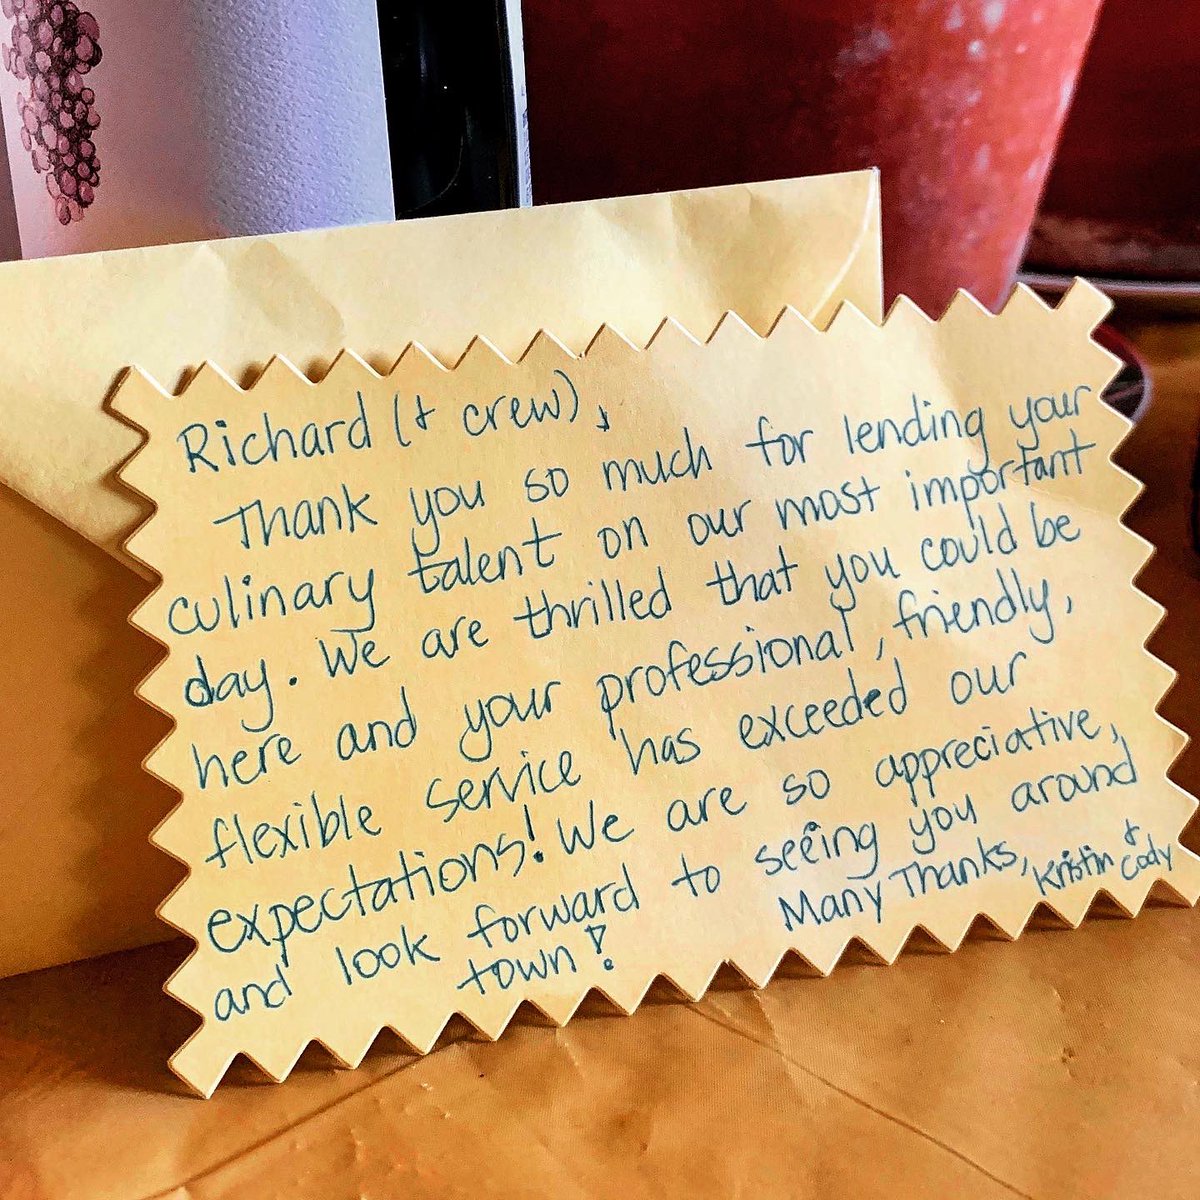 Richard (+ crew),
Thank you so much for lending your
culinary talent on our most important
day. We are thrilled that you could be
here and your professional, friendly,
flexible service has exceeded our
expectations! We are so appreciative,
and look forward to seeing you around
town!
Many Thanks,
Kristin + Cody